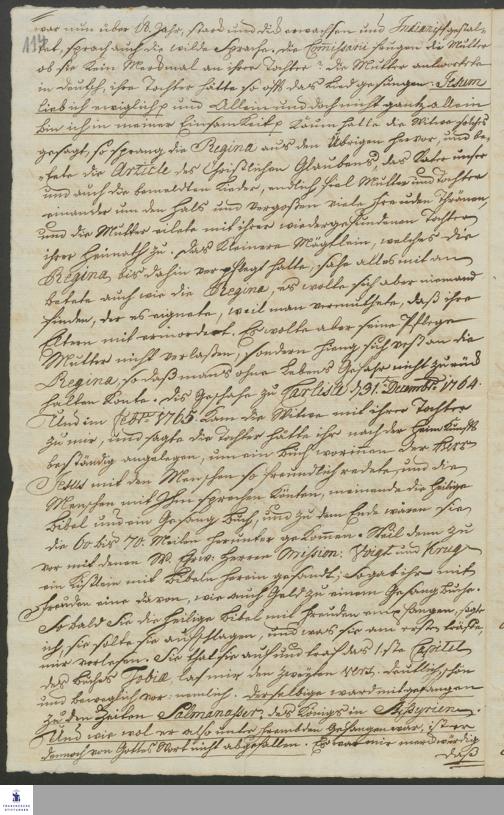 114
war nun über 18. Jahr, starck und dick erwachsen und Indianisch gestal-
tet, sprach auch die wilde Sprache. Die Commissarii frugen die Mutter
ob sie kein Merckmal an ihrer Tochter? die Mutter antwortete
in deutsch, ihre Tochter hätte so offt das Lied gesungen: Jesum
lieb ich ewiglich p und Allein und doch nicht gantz allein
bin ich in meiner Einsamkeit p Kaum hatte die Witwe solches
gesagt, so sprang die Regina aus den Übrigen hervor, und be-
tete die Article des Christlichen Glaubens, das Vater unser
und auch die bemeldten Lieder, endlich fiel Mutter und Tochter
einander um den Hals und vergoßen viele Freuden Thränen,
und die Mutter eilete mit ihrer wiedergefundenen Tochter
ihrer Heimath zu. Das kleinere Mägdlein, welches die
Regina bis dahin verpflegt hatte, sahe alles mit an
betete auch wie die Regina, es wolte sich aber niemand
finden, der es eignete, weil man vermuthete, daß ihre
Eltern mit ermordert. Es wolte aber seine Pflege
Mutter nicht verlaßen, sondern hieng sich vest an die
Regina, so daß mans ohne Lebens Gefahr nicht zurück
halten konte. Dis geschahe zu Carlisle d 31. Decembr. 1764.
Und im Febr. 1765. kam die Witwe mit ihrer Tochter
zu mir, und sagte die Tochter hätte ihr nach der Heimkunfft
beständig angelegen, um ein Buch worinnen der Herr
Jesus mit den Menschen so freundlich redete, und die
Menschen mit Ihm sprechen könten, meinende die heilige
Bibel und ein Gesang Buch, und zu dem Ende waren sie
die 60 bis 70. Meilen herunter gekommen. Weil denn zu
vor mit denen W. Ehrw: Herren Mission: Voigt und Krug
ein Kistlein mit Bibeln herein gesandt; so gab ihr mit
Freuden eine davon, wie auch Geld zu einem Gesang Buche.
So bald Sie die heilige Bibel mit Freuden empfangen, sagte
ich, sie solte sie aufschlagen, und was sie am ersten träffe,
mir vorlesen. Sie that sie auf und traf das 1.ste Capitel
des Buches Tobiæ, las mir den zweyten vers. deutlich, schön
und beweglich vor: nemlich. Derselbige ward mit gefangen
zu den Zeiten Salmanasser, des Königs in Assyrien.
Und wie wol er also unter frembden gefangen war, ist er
dennoch von Gottes Wort nicht abgefallen. Es war mir merckwürdig
daß
FRANCKESCHE
STIFTUNGEN